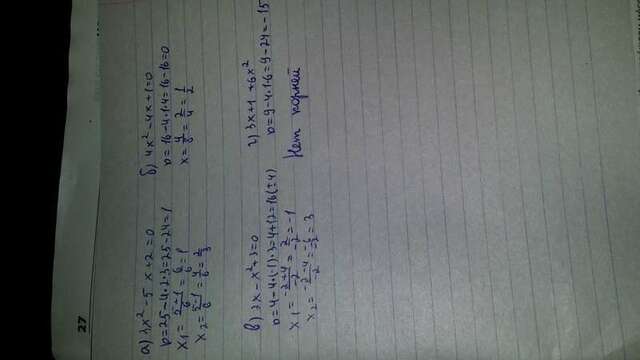 27
а) 3x² - 5 x + 2 = 0
D = 25 - 4·2·3 = 25 - 24 = 1
x₁ = (5+1)/6 = 6/6 = 1
x₂ = (5-1)/6 = 4/6 = 2/3
б) 4x² - 4x + 1 = 0
D = 16 - 4·1·4 = 16 - 16 = 0
x = 4/8 = 2/4 = 1/2
в) 2x - x² + 3 = 0
D = 4 - 4·(-1)·3 = 4 + 12 = 16 (±4)
x₁ = (-2+4)/-2 = 2/-2 = -1
x₂ = (-2-4)/-2 = -6/-2 = 3
г) 3x + 1 + 6x²
D = 9 - 4·1·6 = 9 - 24 = -15
Нет корней